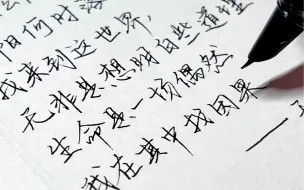 阳何时落
我来到这世界，
无非是想明白些道理
生命是一场偶然
我在其中找因果